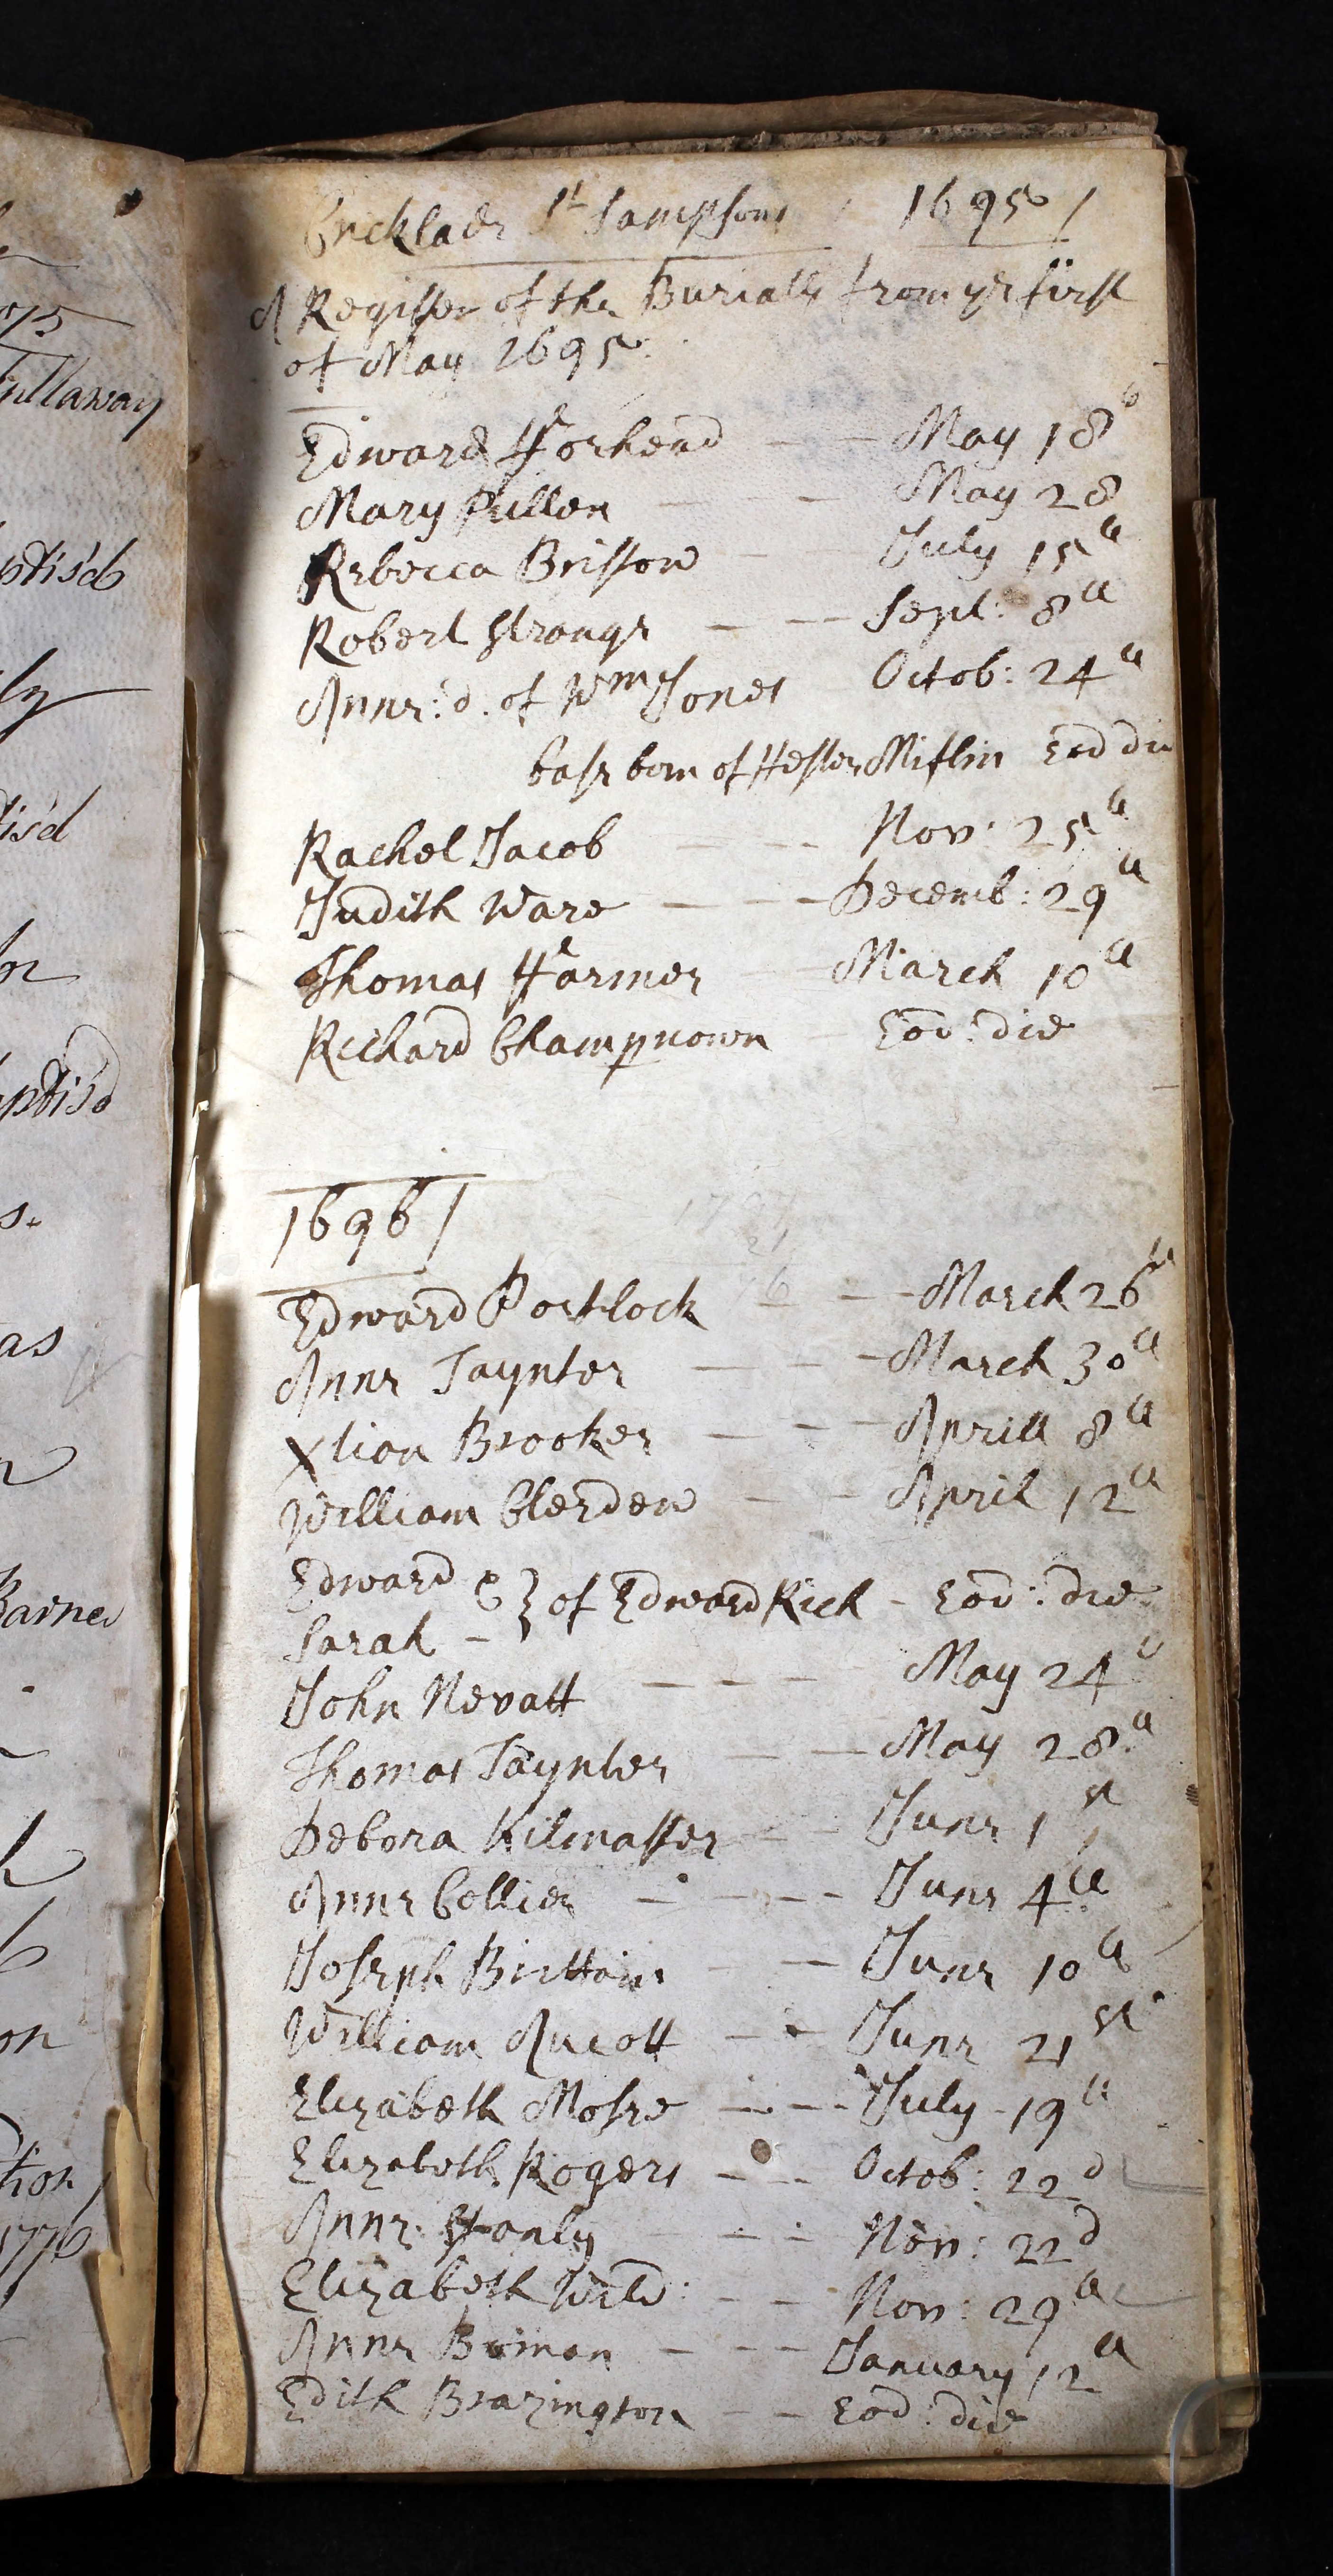 075
ptis'd
tis'd
ptis'd
as
Barnes
on
tion
1776
Cricklade St Sampsons 1695/
A Register of the Burialls from ye first
of May 1695
Edward fforhead — — May 18
Mary Pullen — — May 28
Rebecca Bristow — July 15th
Robert Strange — — Sept: 8th
Anne: d. of Wm Jones Octob: 24th
base born of Hester Miflin Eod die
Rachel Jacob — — Nov: 25th
Judith Ware — — — Decemb: 29th
Thomas ffarmer March 10th
Richard Champnown — Eod: die
1696/
Edward Portlock — — March 26th
Anne Taynter — — — March 30th
Xtian Brooker — — — Aprill 8th
William Clerdew — — April 12th
Edward & } of Edward Rich - Eod: die
Sarah -
John Nevatt — — — — May 24
Thomas Taynter — — May 28th
Debora Kilmaster — — June 1st
Anne Collier — — — — June 4th
Joseph Brittain — — June 10th
William Aucott — — June 21st
Elizabeth Mosse — — — July - 19th
Elizabeth Rogers — — Octob: 22d
Anne Hanly — — Nov: 22d
Elizabeth Wild: — — Nov: 29th
Anne Boman — — — January 12th
Edith Brazington — — Eod: die